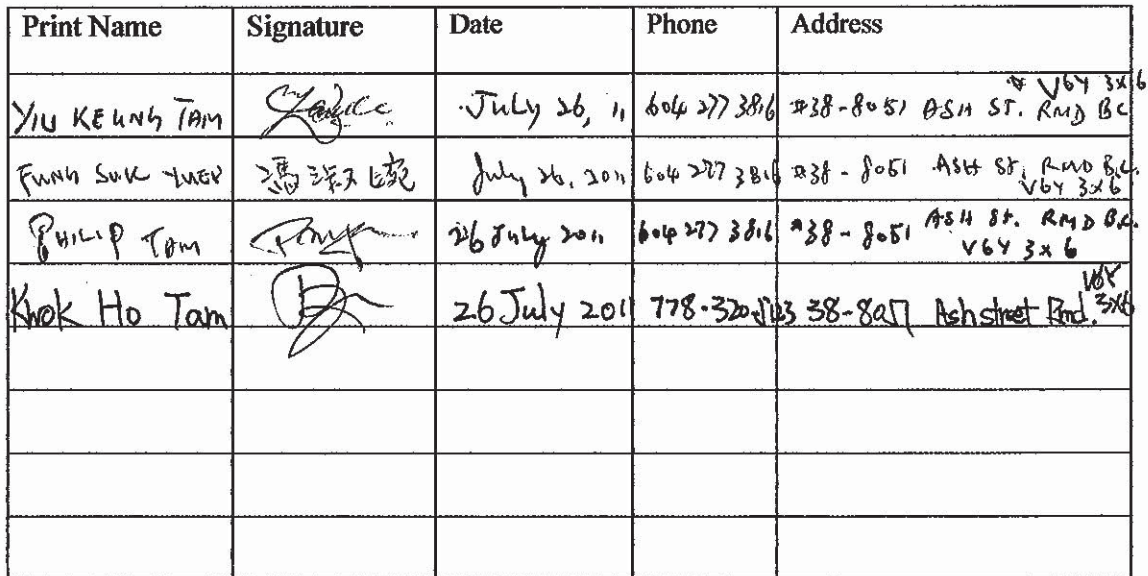 Print Name Signature Date Phone Address
V6Y 3X6
YIU KEUNG TAM July 26, 11 604 277 3816 #38-8051 ASH ST. RMD BC
FUNG SUK YUEN 馮淑 July 26, 2011 604 277 3816 #38-8051 ASH ST. RMD B.C.
V6Y 3X6
PHILIP TAM 26 July 2011 604 277 3816 #38-8051 ASH ST. RMD B.C.
V6Y 3X6
V6Y
Kwok Ho Tam 26 July 2011 38-8051 Ash street Rmd. 3X6